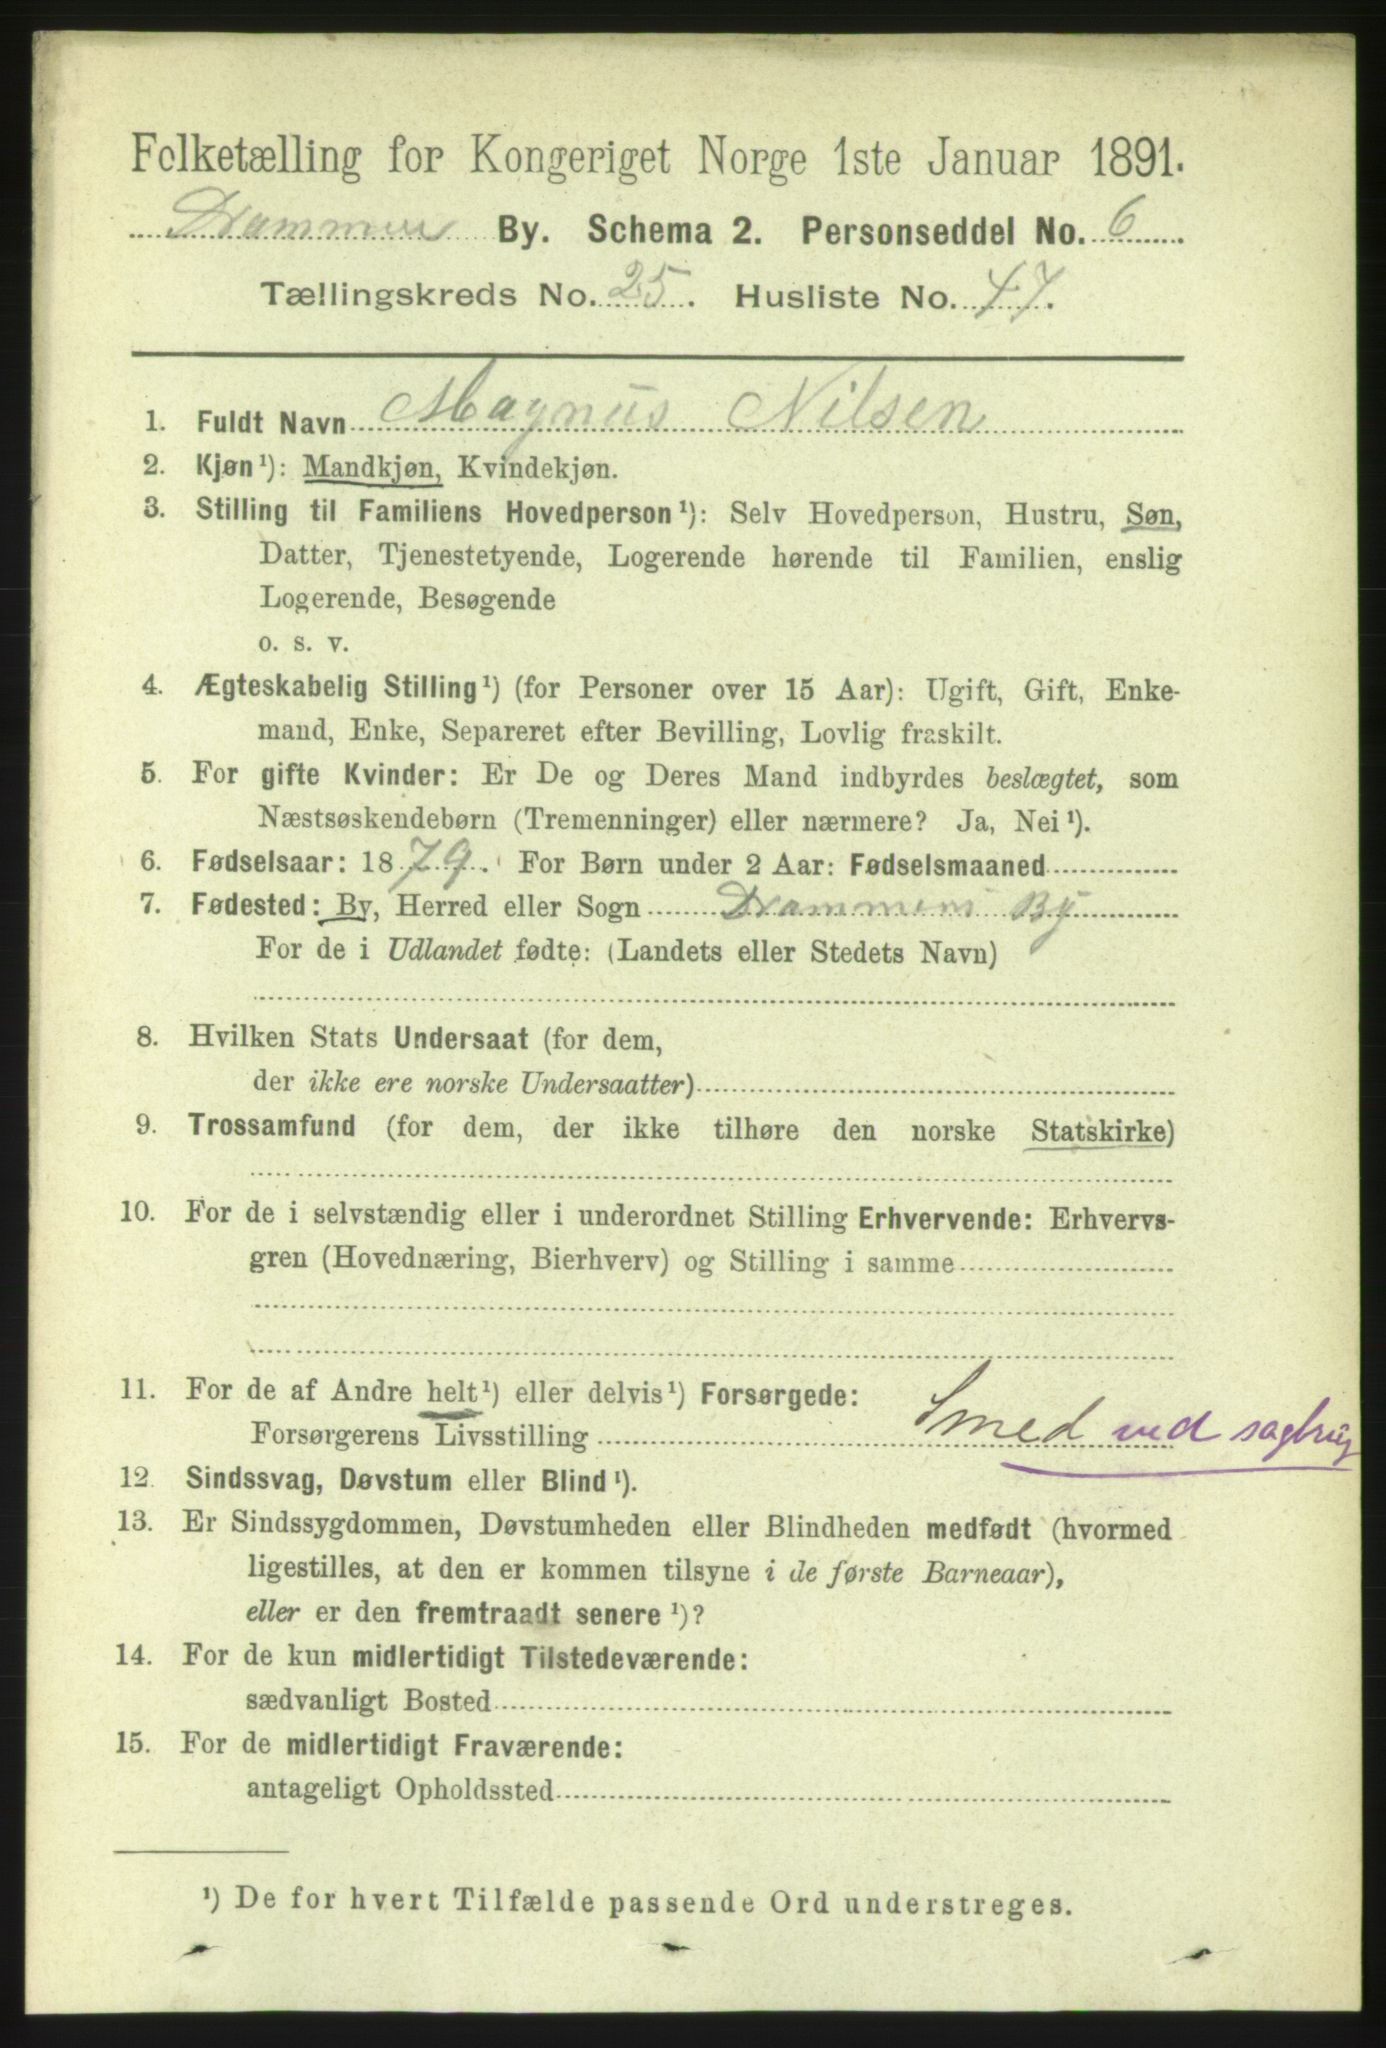 Folketælling for Kongeriget Norge 1ste Januar 1891.
Drammen By. Schema 2. Personseddel No. 6
Tællingskreds No. 25. Husliste No. 47.
1. Fuldt Navn Magnus Nilsen
2. Kjøn¹): Mandkjøn, Kvindekjøn.
3. Stilling til Familiens Hovedperson¹): Selv Hovedperson, Hustru, Søn,
Datter, Tjenestetyende, Logerende hørende til Familien, enslig
Logerende, Besøgende
o. s. v.
4. Ægteskabelig Stilling¹) (for Personer over 15 Aar): Ugift, Gift, Enke-
mand, Enke, Separeret efter Bevilling, Lovlig fraskilt.
5. For gifte Kvinder: Er De og Deres Mand indbyrdes beslægtet, som
Næstsøskendebørn (Tremenninger) eller nærmere? Ja, Nei¹).
6. Fødselsaar: 1879. For Børn under 2 Aar: Fødselsmaaned
7. Fødested: By, Herred eller Sogn Drammens By
For de i Udlandet fødte: (Landets eller Stedets Navn)
8. Hvilken Stats Undersaat (for dem,
der ikke ere norske Undersaatter)
9. Trossamfund (for dem, der ikke tilhøre den norske Statskirke)
10. For de i selvstændig eller i underordnet Stilling Erhvervende: Erhvervs-
gren (Hovednæring, Bierhverv) og Stilling i samme
11. For de af Andre helt¹) eller delvis¹) Forsørgede:
Forsørgerens Livsstilling Smed ved sagbrug
12. Sindssvag, Døvstum eller Blind¹).
13. Er Sindssygdommen, Døvstumheden eller Blindheden medfødt (hvormed
ligestilles, at den er kommen tilsyne i de første Barneaar),
eller er den fremtraadt senere¹)?
14. For de kun midlertidigt Tilstedeværende:
sædvanligt Bosted
15. For de midlertidigt Fraværende:
antageligt Opholdssted
¹) De for hvert Tilfælde passende Ord understreges.